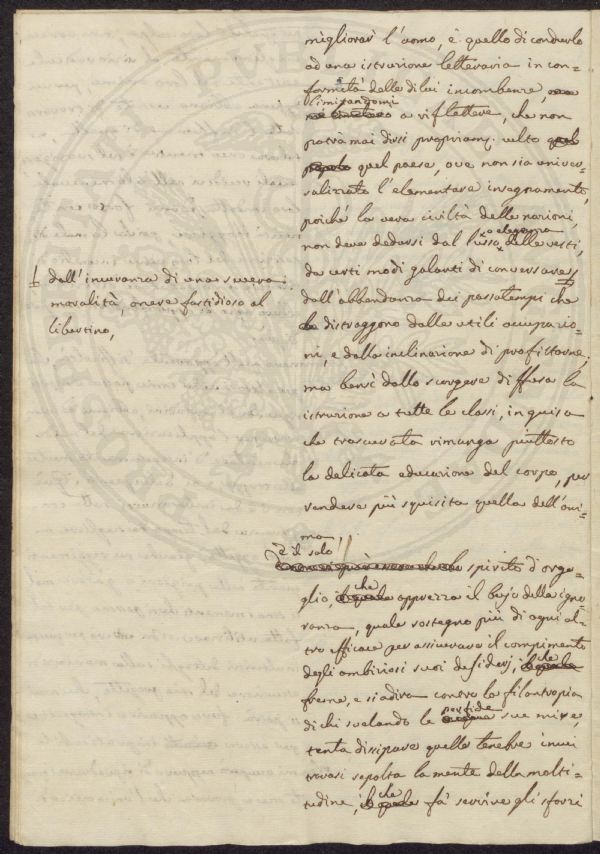 migliorar l'uomo, è quello di condurlo
ad una istruzione letteraria in con=
formità delle di lui incombenze,
limitandomi
a riflettere, che non
potrà mai dirsi propriam: culto
quel paese, ove non sia univer=
salizzato l'elementare insegnamento,
poiché la vera civiltà delle nazioni,
o eleganza
non deve dedursi dal lusso delle vesti,
da certi modi galanti di conversare,
dall'abbondanza dei passatempi che
distraggono dalle utili occupazio=
ni, e dalla inclinazione di profittarne;
ma bensì dallo scorgere diffusa la
istruzione a tutte le classi, in guisa
che trascurata rimanga piuttosto
la delicata educazione del corpo, per
rendere più squisita quella dell'ani=
ma,
dall' di una severa
moralità, onere fastidioso al
libertino,
è il solo
spirito d'orgo=
glio, che apprezza il bujo della igno=
ranza, quale sostegno più di ogni al=
tro efficace per assicurare il compimento
degli ambiziosi suoi desiderj, che
freme, e si adira contro la filantropia
di chi svelando le perfide sue mire,
tenta dissipare quelle tenebre in cui
trovasi sepolta la mente della molti=
tudine, che fà servire gli sforzi